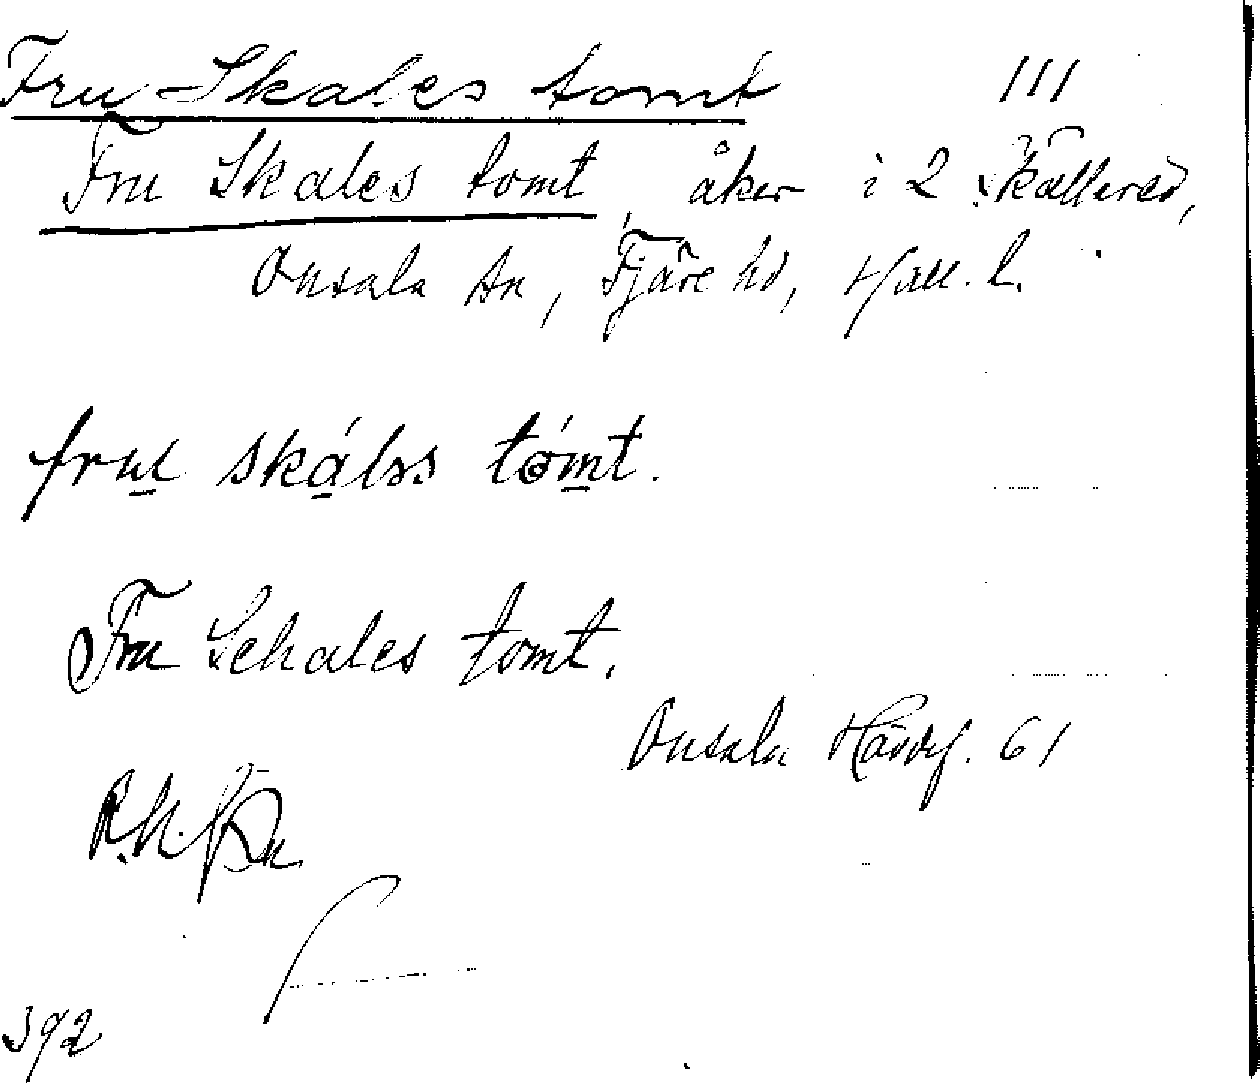 Fru Skales tomt III
Fru Skales tomt, åker i 2 Källered,
Onsala sn, Fjäre hd, Hall. l.
fru skálss tómt.
Fru Schales tomt.
Onsala Hävdf. 61
392